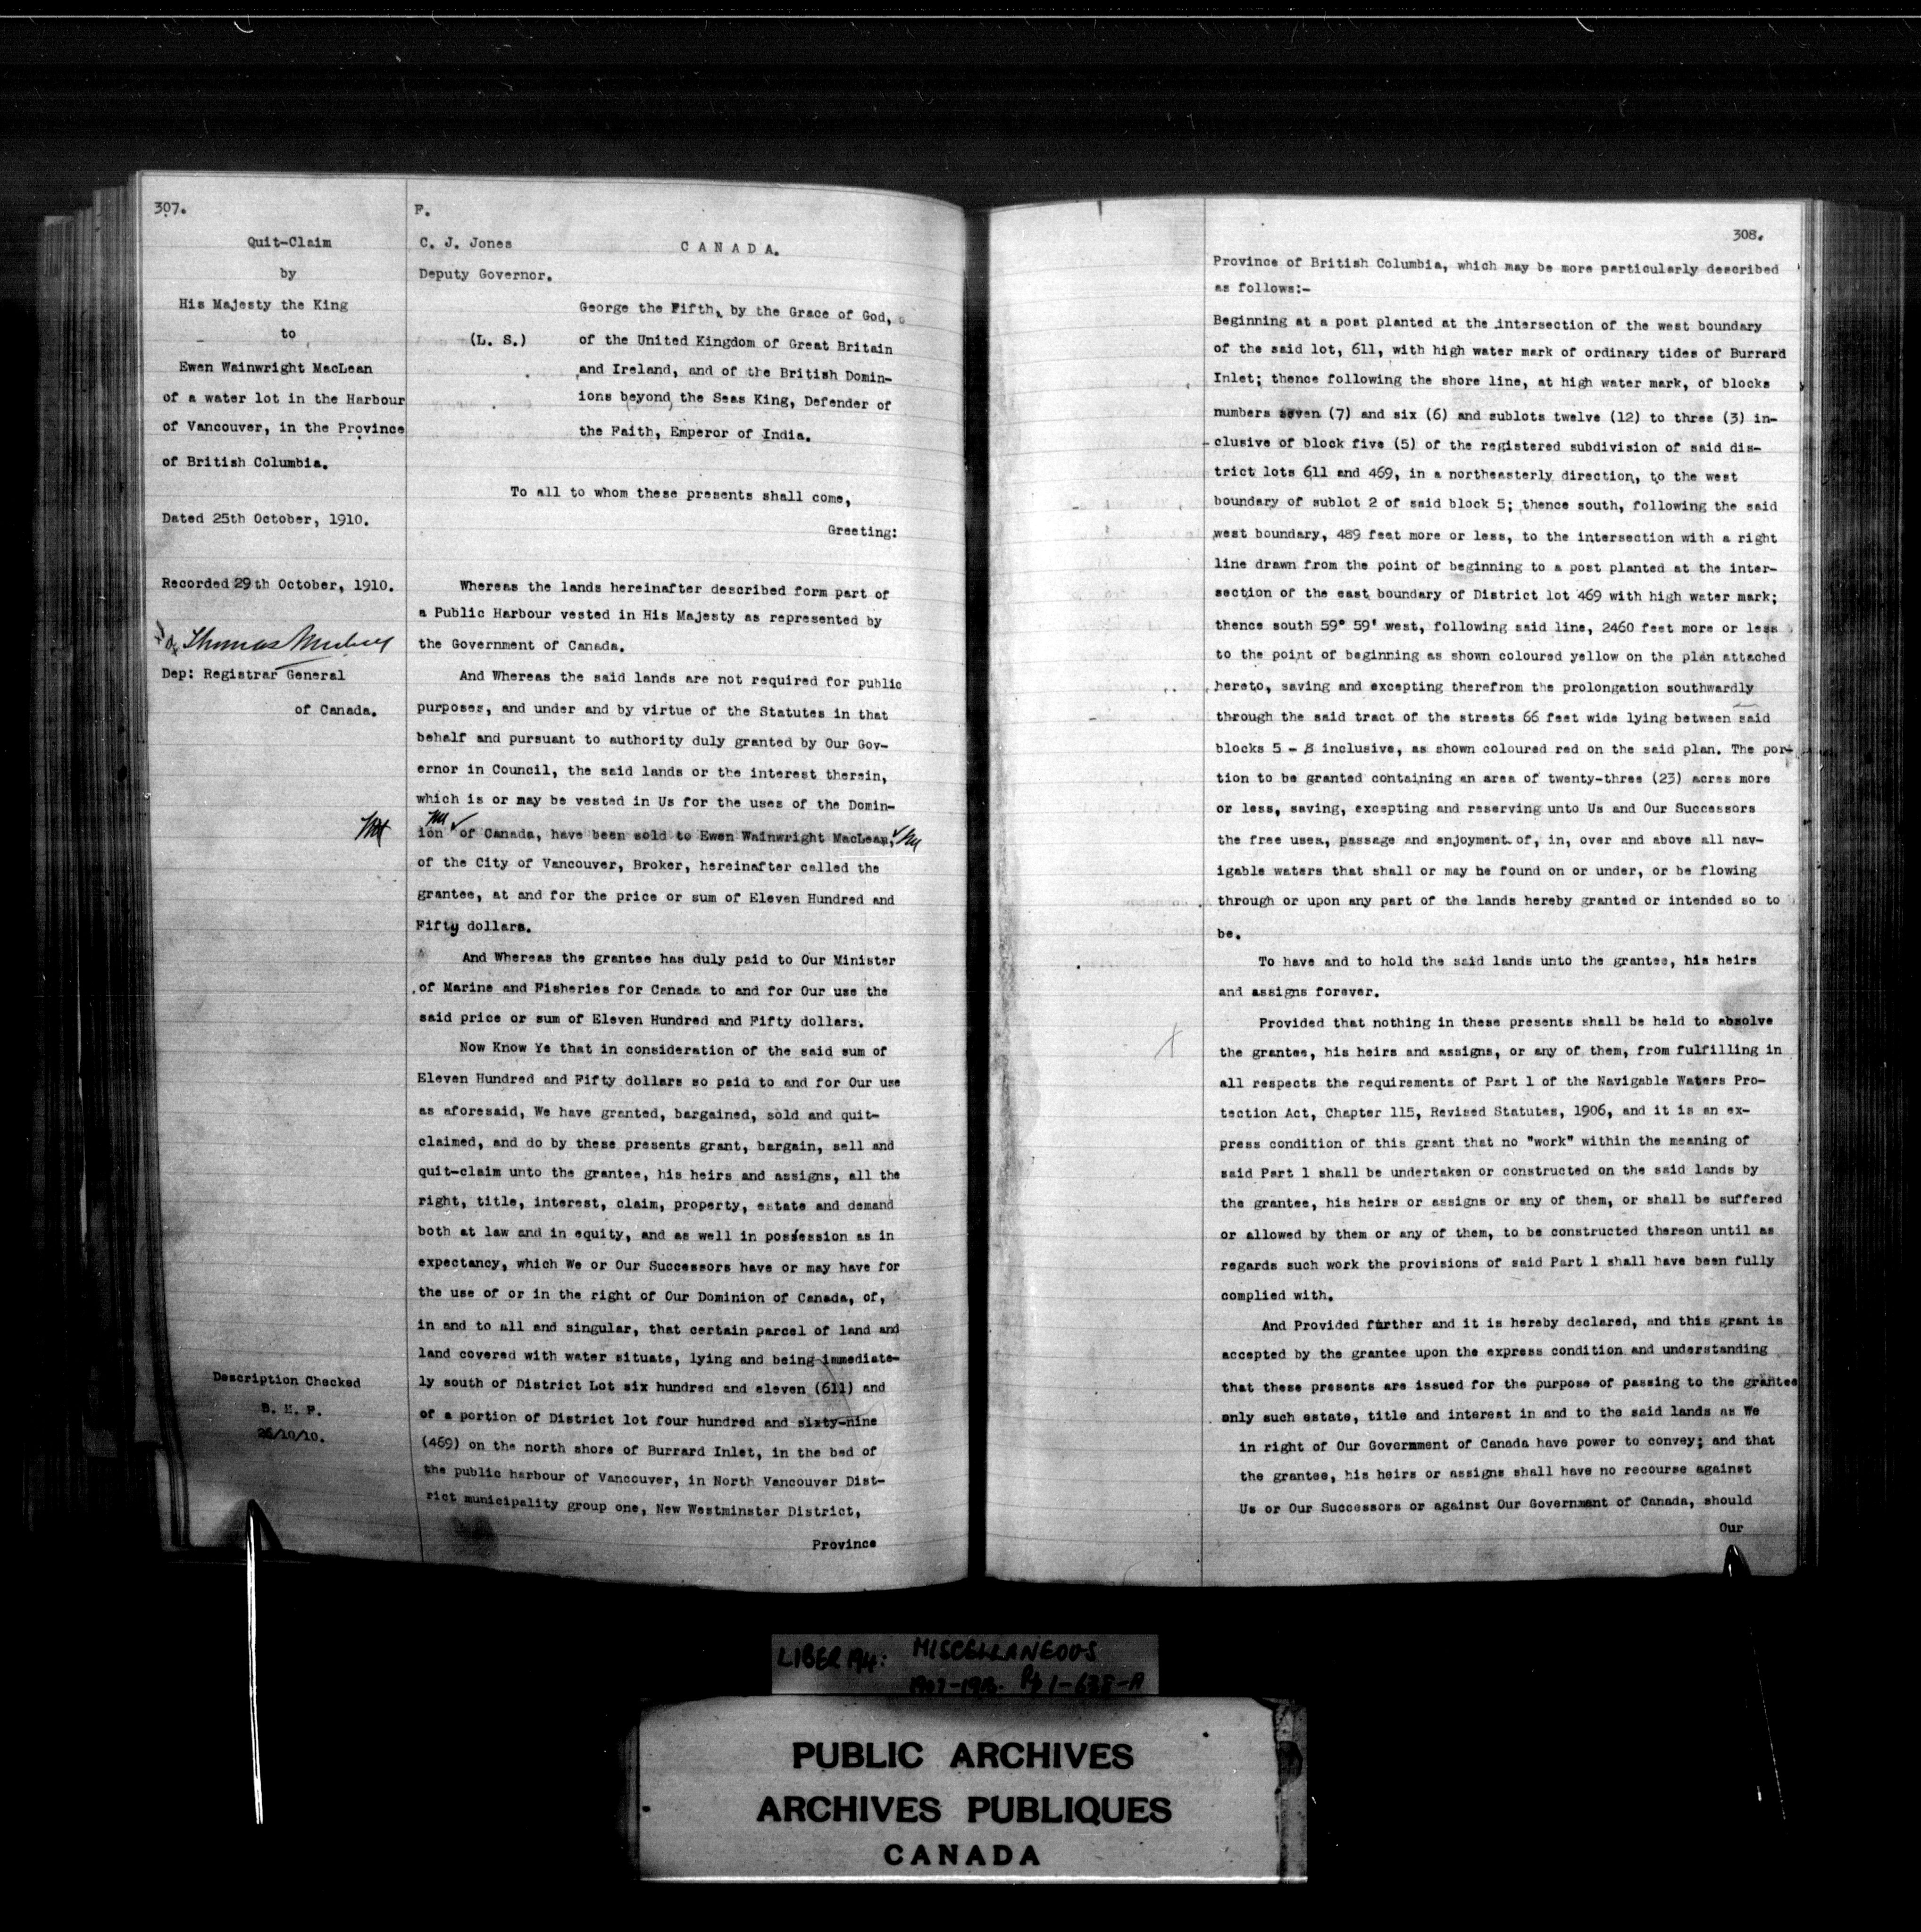 307.
Quit-Claim
by
His Majesty the King
to
Ewen Wainwright MacLean
of a water lot in the Harbour
of Vancouver, in the Province
of British Columbia.
Dated 25th October, 1910.
Recorded 29th October, 1910.
Dep: Registrar General
of Canada.
Description Checked
26/10/10.
F.
C. J. Jones
CANADA.
Deputy Governor.
George the Fifth, by the Grace of God,
(L. S.) of the United Kingdom of Great Britain
and Ireland, and of the British Domin-
ions beyond the Seas King, Defender of
the Faith, Emperor of India.
To all to whom these presents shall come,
Greeting:
Whereas the lands hereinafter described form part of
a Public Harbour vested in His Majesty as represented by
the Government of Canada.
And Whereas the said lands are not required for public
purposes, and under and by virtue of the Statutes in that
behalf and pursuant to authority duly granted by Our Gov-
ernor in Council, the said lands or the interest therein,
which is or may be vested in Us for the uses of the Domin-
ion of Canada, have been sold to Ewen Wainwright MacLean,
of the City of Vancouver, Broker, hereinafter called the
grantee, at and for the price or sum of Eleven Hundred and
Fifty dollars.
And Whereas the grantee has duly paid to Our Minister
of Marine and Fisheries for Canada to and for Our use the
said price or sum of Eleven Hundred and Fifty dollars.
Now Know Ye that in consideration of the said sum of
Eleven Hundred and Fifty dollars so paid to and for Our use
as aforesaid, We have granted, bargained, sold and quit-
claimed, and do by these presents grant, bargain, sell and
quit-claim unto the grantee, his heirs and assigns, all the
right, title, interest, claim, property, estate and demand
both at law and in equity, and as well in possession as in
expectancy, which We or Our Successors have or may have for
the use of or in the right of Our Dominion of Canada, of,
in and to all and singular, that certain parcel of land and
land covered with water situate, lying and being immediate-
ly south of District Lot six hundred and eleven (611) and
of a portion of District lot four hundred and sixty-nine
(469) on the north shore of Burrard Inlet, in the bed of
the public harbour of Vancouver, in North Vancouver Dist-
rict municipality group one, New Westminster District,
Province
308.
Province of British Columbia, which may be more particularly described
as follows:-
Beginning at a post planted at the intersection of the west boundary
of the said lot, 611, with high water mark of ordinary tides of Burrard
Inlet; thence following the shore line, at high water mark, of blocks
numbers seven (7) and six (6) and sublots twelve (12) to three (3) in-
clusive of block five (5) of the registered subdivision of said dis-
trict lots 611 and 469, in a northeasterly direction, to the west
boundary of sublot 2 of said block 5; thence south, following the said
west boundary, 489 feet more or less, to the intersection with a right
line drawn from the point of beginning to a post planted at the inter-
section of the east boundary of District lot 469 with high water mark;
thence south 59° 59' west, following said line, 2460 feet more or less
to the point of beginning as shown coloured yellow on the plan attached
hereto, saving and excepting therefrom the prolongation southwardly
through the said tract of the streets 66 feet wide lying between said
blocks 5 - 8 inclusive, as shown coloured red on the said plan. The por-
tion to be granted containing an area of twenty-three (23) acres more
or less, saving, excepting and reserving unto Us and Our Successors
the free uses, passage and enjoyment of, in, over and above all nav-
igable waters that shall or may be found on or under, or be flowing
through or upon any part of the lands hereby granted or intended so to
be.
To have and to hold the said lands unto the grantee, his heirs
and assigns forever.
Provided that nothing in these presents shall be held to absolve
the grantee, his heirs and assigns, or any of them, from fulfilling in
all respects the requirements of Part 1 of the Navigable Waters Pro-
tection Act, Chapter 115, Revised Statutes, 1906, and it is an ex-
press condition of this grant that no "work" within the meaning of
said Part 1 shall be undertaken or constructed on the said lands by
the grantee, his heirs or assigns or any of them, or shall be suffered
or allowed by them or any of them, to be constructed thereon until as
regards such work the provisions of said Part 1 shall have been fully
complied with.
And Provided further and it is hereby declared, and this grant is
accepted by the grantee upon the express condition and understanding
that these presents are issued for the purpose of passing to the grantee
only such estate, title and interest in and to the said lands as We
in right of Our Government of Canada have power to convey; and that
the grantee, his heirs or assigns shall have no recourse against
Us or Our Successors or against Our Government of Canada, should
Our
LIBER 194: MISCELLANEOUS
1907-1913. Pg 1-638-A
PUBLIC ARCHIVES
ARCHIVES PUBLIQUES
CANADA